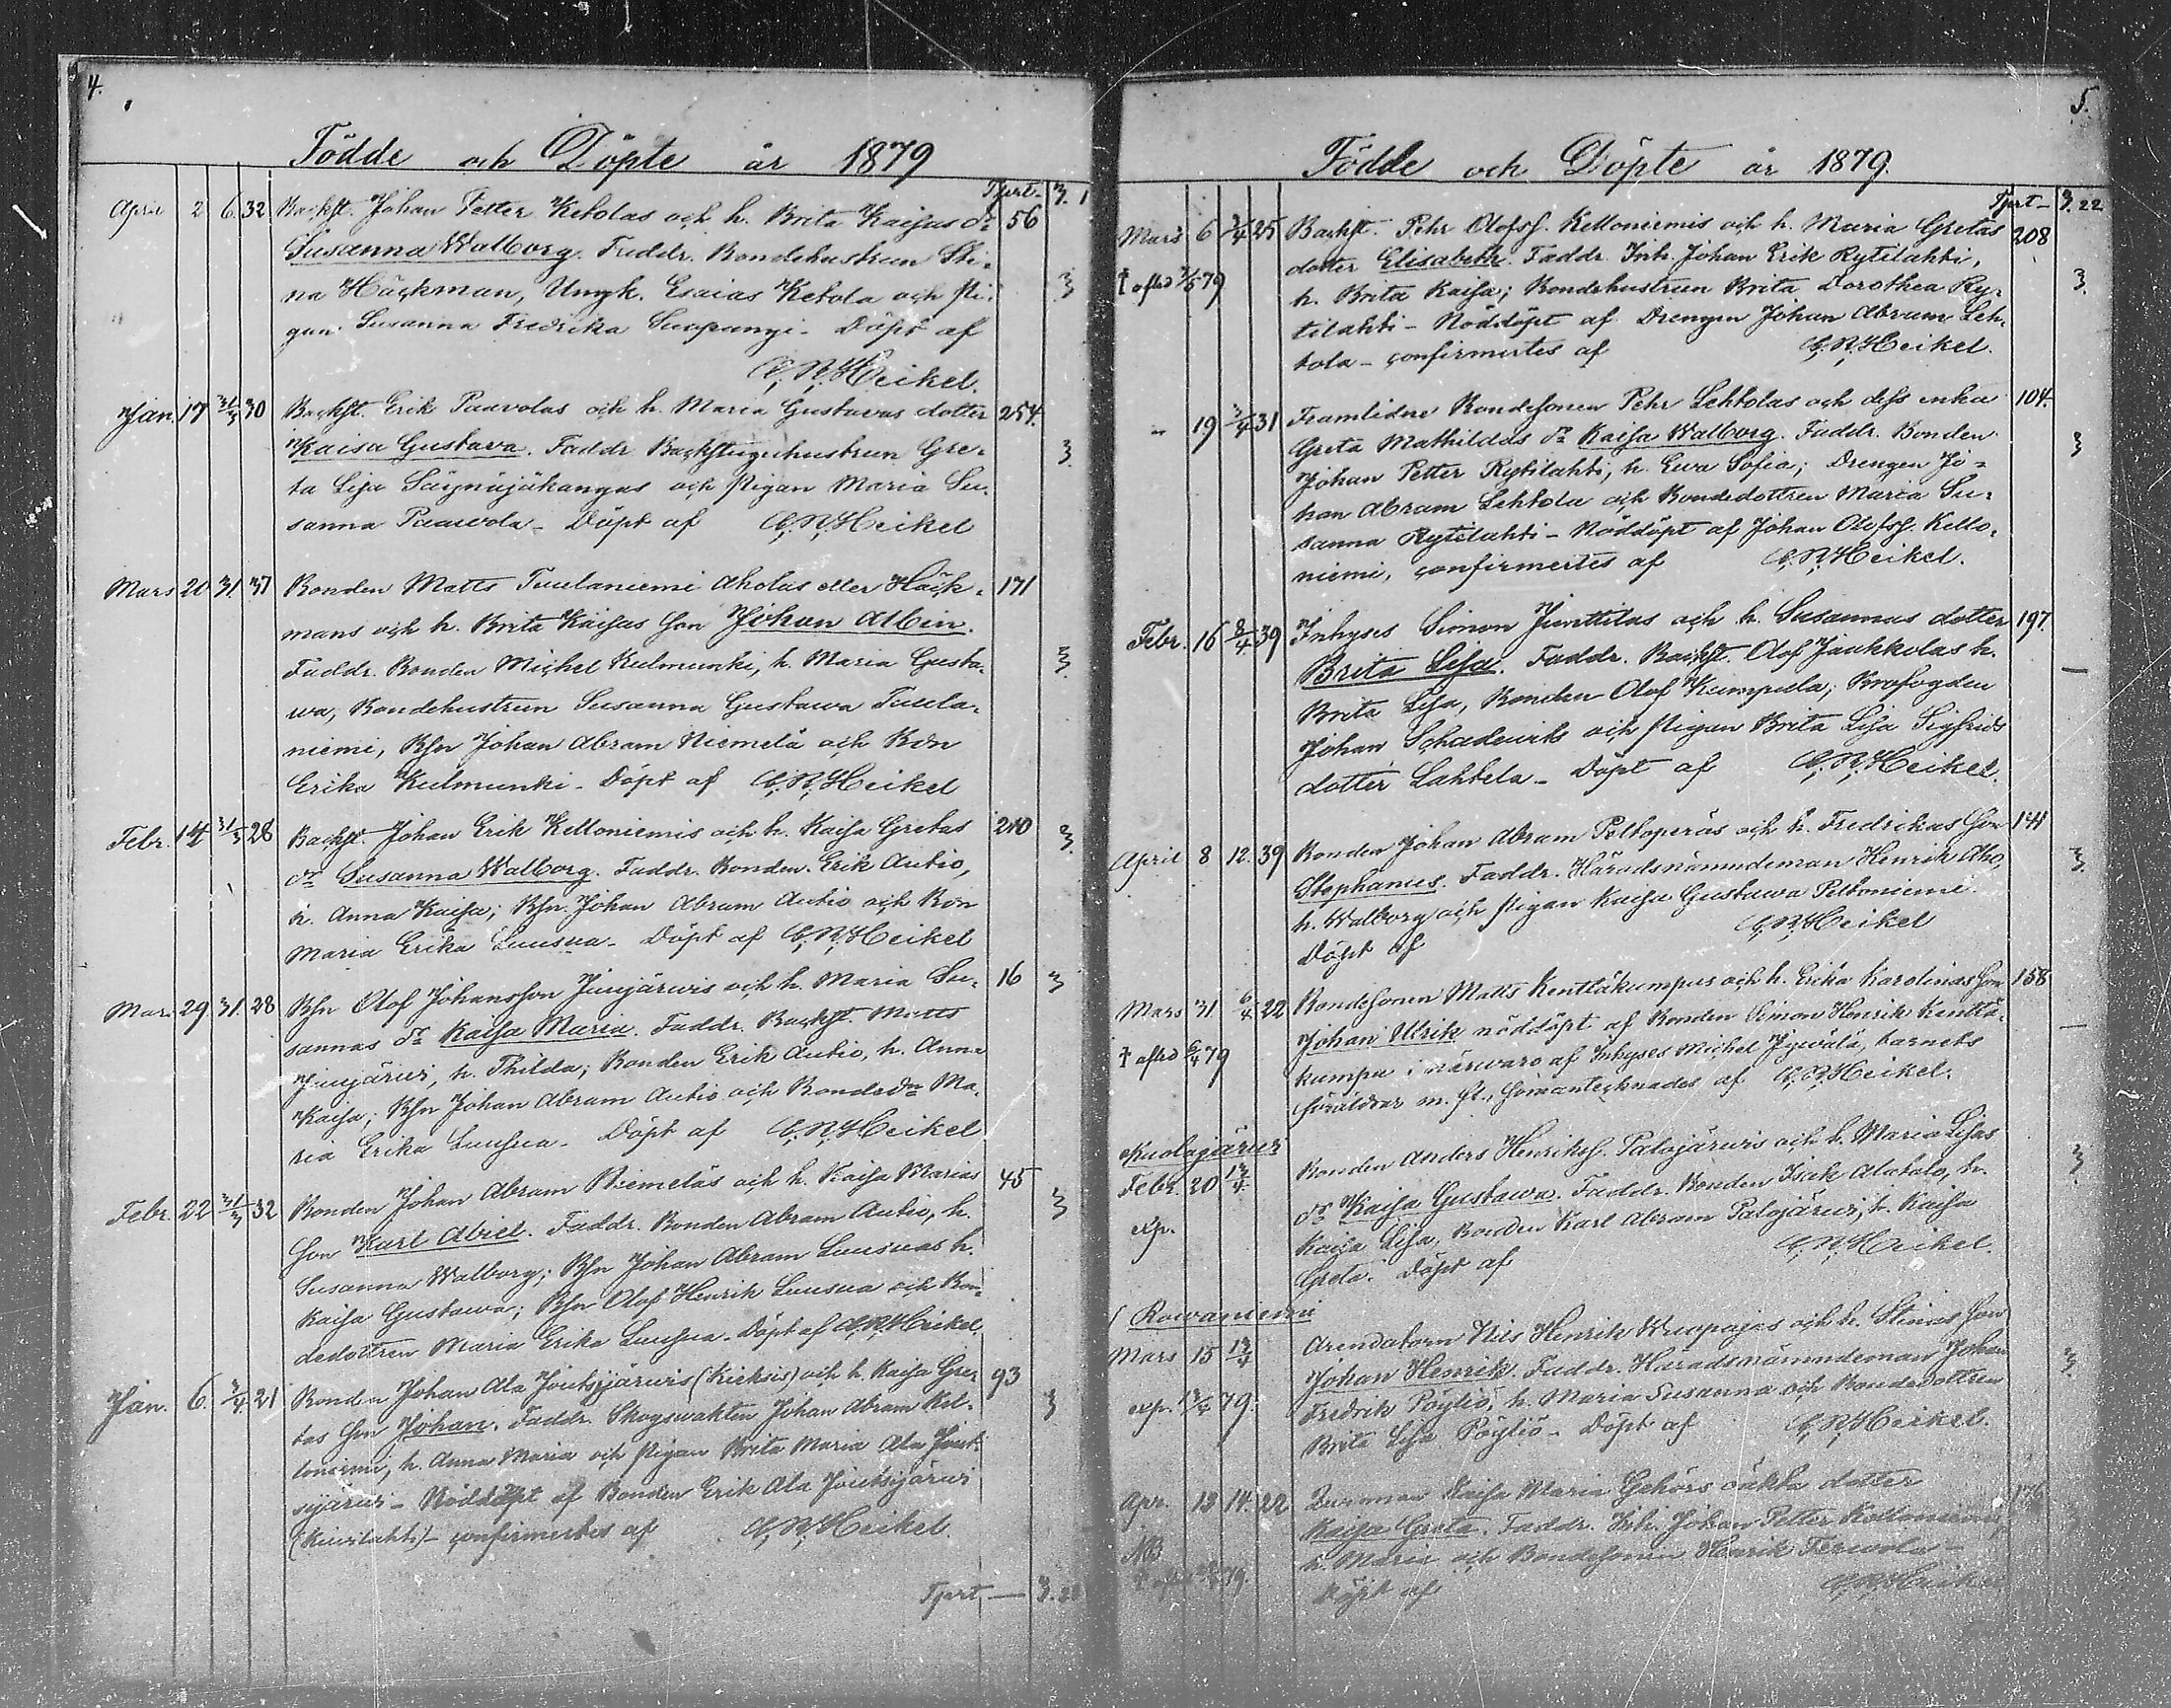 4.
Födde och Döpte år 1879
Tprt- 3. 1
April 2 6. 32 Backst. Johan Petter Ketolas och h. Brita Kaisas dr 56
Susanna Walborg. Faddr. Bondehustrun Sti-
na Häckman, Ungk. Esaias Ketola och Pi-
gan Susanna Fredrika Suopangi - Döpt af
A. R. Heikel.
Jan. 17 31/3 30 Backst. Erik Paavolas och h. Maria Gustavas dotter 254.
Kaisa Gustava. Faddr. Backstuguhustrun Gre-
ta Lisa och Pigan Maria Su-
sanna Paavola - Döpt af A. R. Heikel
Mars 20 31. 37 Bonden Matts Tuulaniemi Aholas eller Häck- 171
mans och h. Brita Kaisas son Johan Albin.
Faddr. Bonden Michel Kulmunki, h. Maria Gusta-
va, Bondehustrun Susanna Gustawa Tuula-
niemi, Bsn Johan Abram Niemelä och Bdn
Erika Kulmunki - Döpt af A. R. Heikel
Febr. 14 31/3 28 Backst. Johan Erik Kelloniemis och h. Kaisa Gretas 240
dr Susanna Walborg. Faddr. Bonden Erik Autio,
h. Anna Kaisa; Bsn. Johan Abram Autio och Bdn
Maria Erika Luusua - Döpt af A. R. Heikel
Mars 29 31. 28 Bsn Olof Johansson Jinijärwis och h. Maria Su- 16
sannas dr Kaisa Maria. Faddr. Backst. Matts
Jinijärwi, h. Thilda; Bonden Erik Autio, h. Anna
Kaisa; Bsn Johan Abram Autio och Bondedn Ma-
ria Erika Luusua - Döpt af A. R. Heikel
Febr. 22 31/3 32 Bonden Johan Abram Niemeläs och h. Kaisa Marias 45
son Karl Abiel. Faddr. Bonden Abram Autio, h.
Susanna Walborg; Bsn Johan Abram Luusuas h.
Kaisa Gustawa; Bsn Olof Henrik Luusua och Bon-
dedottren Maria Erika Luusua. Döpt af A. R. Heikel.
Jan. 6. 3/4. 21 Bonden Johan Ala Joutsijärwis och h. Kaisa Gre- 93
tas son Johan. Faddr. Skogswakten Johan Abram Kel-
loniemi, h. Anna Maria och Pigan Brita Maria Ala Jout-
sijärwi - Nöddöpt af Bonden Erik Ala Joutsijärwi
confirmertes af A. R. Heikel.
Tprt — 3.
5.
Födde och Döpte år 1879.
Tprt - 3. 22
Mars 6 3/4 25 Backst. Pehr Olofss. Kelloniemis och h. Maria Gretas 208
dotter Elisabeth. Faddr. Inh. Johan Erik Rytilahti,
† afled 79
h. Brita Kaisa; Bondehustrun Brita Dorothea Ry-
tilahti - Nöddöpt af Drengen Johan Abram Leh-
tola - confirmertes af A. R. Heikel.
" 19 3/4 31 Framlidne Bondesonen Pehr Lehtolas och dess enka 104.
Greta Mathildas dr Kaisa Walborg. Faddr. Bonden
Johan Petter Rytilahti, h. Ewa Sofia; Drengen Jo-
han Abram Lehtola och Bondedottren Maria Su-
sanna Rytilahti - Nöddöpt af Johan Olofss. Kello-
niemi, confirmertes af A. R. Heikel.
Febr. 16 8/4 39 Inhyses Simon Junttilas och h. Susannas dotter 197.
Brita Lisa. Faddr. Backst. Olof Jaukkolas h.
Brita Lisa, Bonden Olof Kumpula; Krofogden
Johan Schadewik och Pigan Brita Lisa Sigfrids
dotter Lahtela - Döpt af A. R. Heikel.
April 8 12. 39 Bonden Johan Abram Peltoperäs och h. Fredrikas son 141
Stephanus. Faddr. Häradsnämndeman Henrik Aho,
h. Walborg och Pigan Kaisa Gustawa Peltoniemi.
Döpt af A. R. Heikel
Mars 31 6/4 22 Bondesonen Matts Kenttäkumpus och h. Erika Karolinas son 158
Johan Ulrik nöddöpt af Bonden Simon Henrik Kenttä-
† afled 6/4 79
kumpu i närwaro af Inhyses Michel barnets
föräldrar m. fl., som antecknades af A. R. Heikel.
Kuolajärwi
Febr. 20 13/4 Bonden Anders Henrikss. Palojärwis och h. Maria Lisas
dr Kaisa Gustawa. Faddr. Bonden Isak Alatalo, h.
exp.
Kaisa Lisa, Bonden Karl Abram Palojärwi, h. Kaisa
Greta. Döpt af A. R. Heikel.
Rowaniemi
Mars 15 13/4 Arendatorn Nils Henrik Wuopajas och h. Stinas son
Johan Henrik. Faddr. Häradsnämndeman Johan
exp. 13/4 79.
Fredrik Pöyliö, h. Maria Susanna och Bondedottren
Brita Lisa Pöyliö - Döpt af A. R. Heikel.
Apr. 13 14. 22 Qwinnan Kaisa Maria Gehörs oäkta dotter
Kaisa Greta. Faddr. Inh. Johan Petter Kelloniemi,
NB
h. Maria och Bondesonen Henrik Terwola -
Döpt af A. R. Heikel